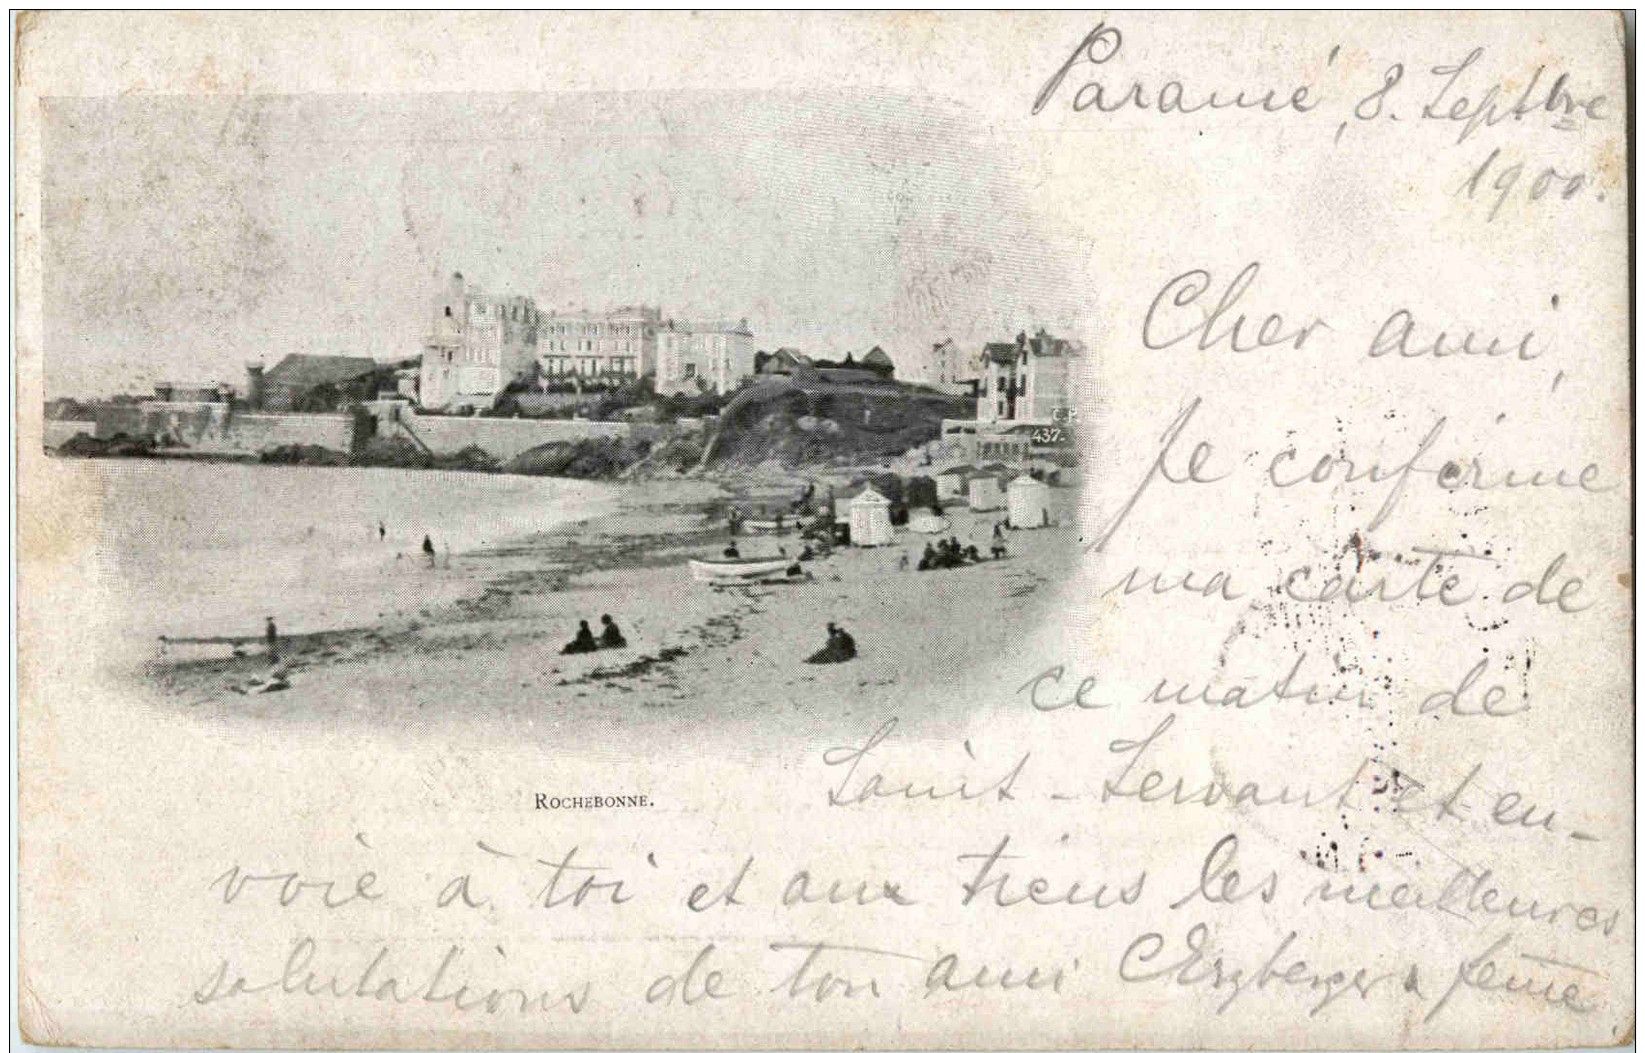 Paramé, 8. Septbre
1900.
Cher ami,
Je confirme
ma carte de
ce matin de
Saint-Servant et en-
voie à toi et aux tiens les meilleures
salutations de ton ami CErzberger & feme
C.P.
437.
ROCHEBONNE.